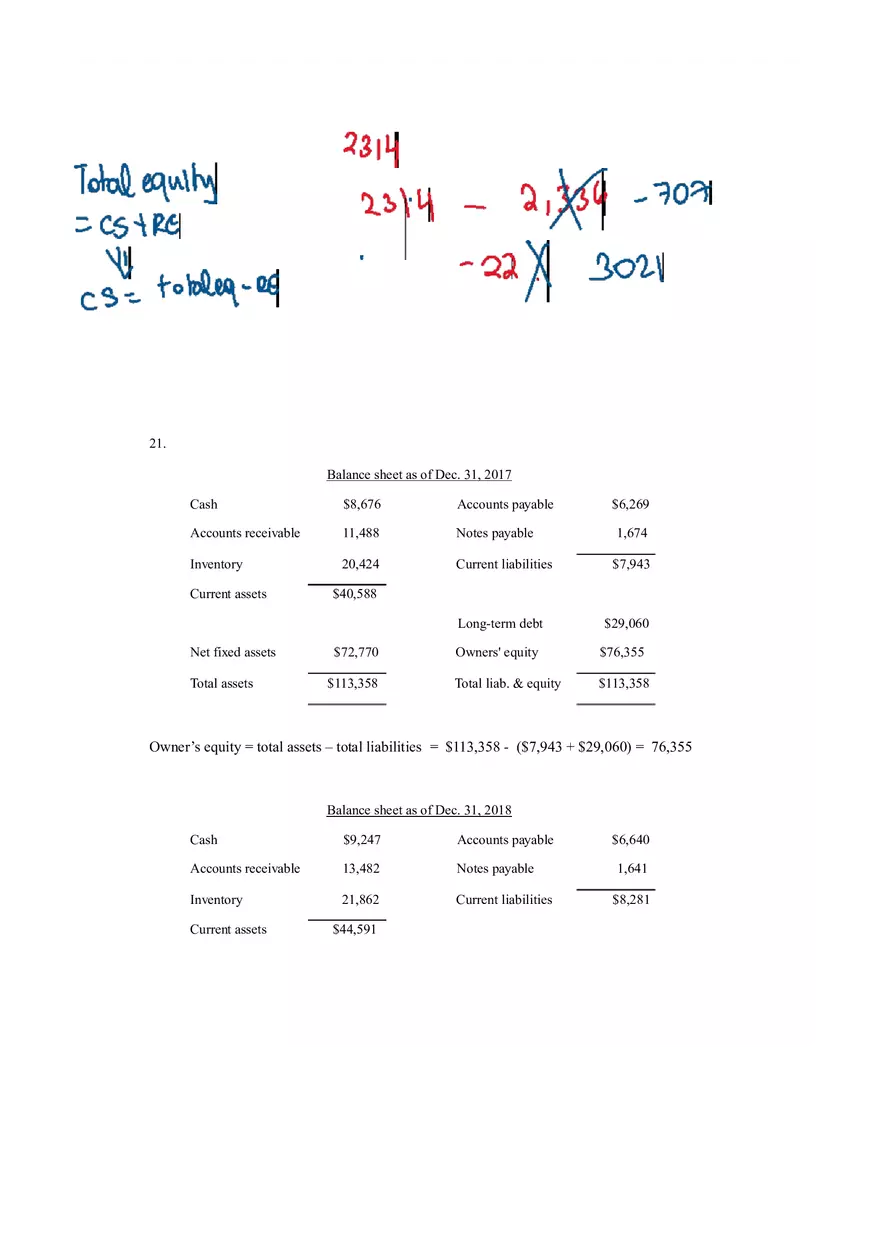 2314
Total equity
= CS + RE
CS = total eq - RE
2314 - 2,334 - 707
- 22 3021
21.
Balance sheet as of Dec. 31, 2017
Cash $8,676 Accounts payable $6,269
Accounts receivable 11,488 Notes payable 1,674
Inventory 20,424 Current liabilities $7,943
Current assets $40,588
Long-term debt $29,060
Net fixed assets $72,770 Owners' equity $76,355
Total assets $113,358 Total liab. & equity $113,358
Owner’s equity = total assets – total liabilities = $113,358 - ($7,943 + $29,060) = 76,355
Balance sheet as of Dec. 31, 2018
Cash $9,247 Accounts payable $6,640
Accounts receivable 13,482 Notes payable 1,641
Inventory 21,862 Current liabilities $8,281
Current assets $44,591